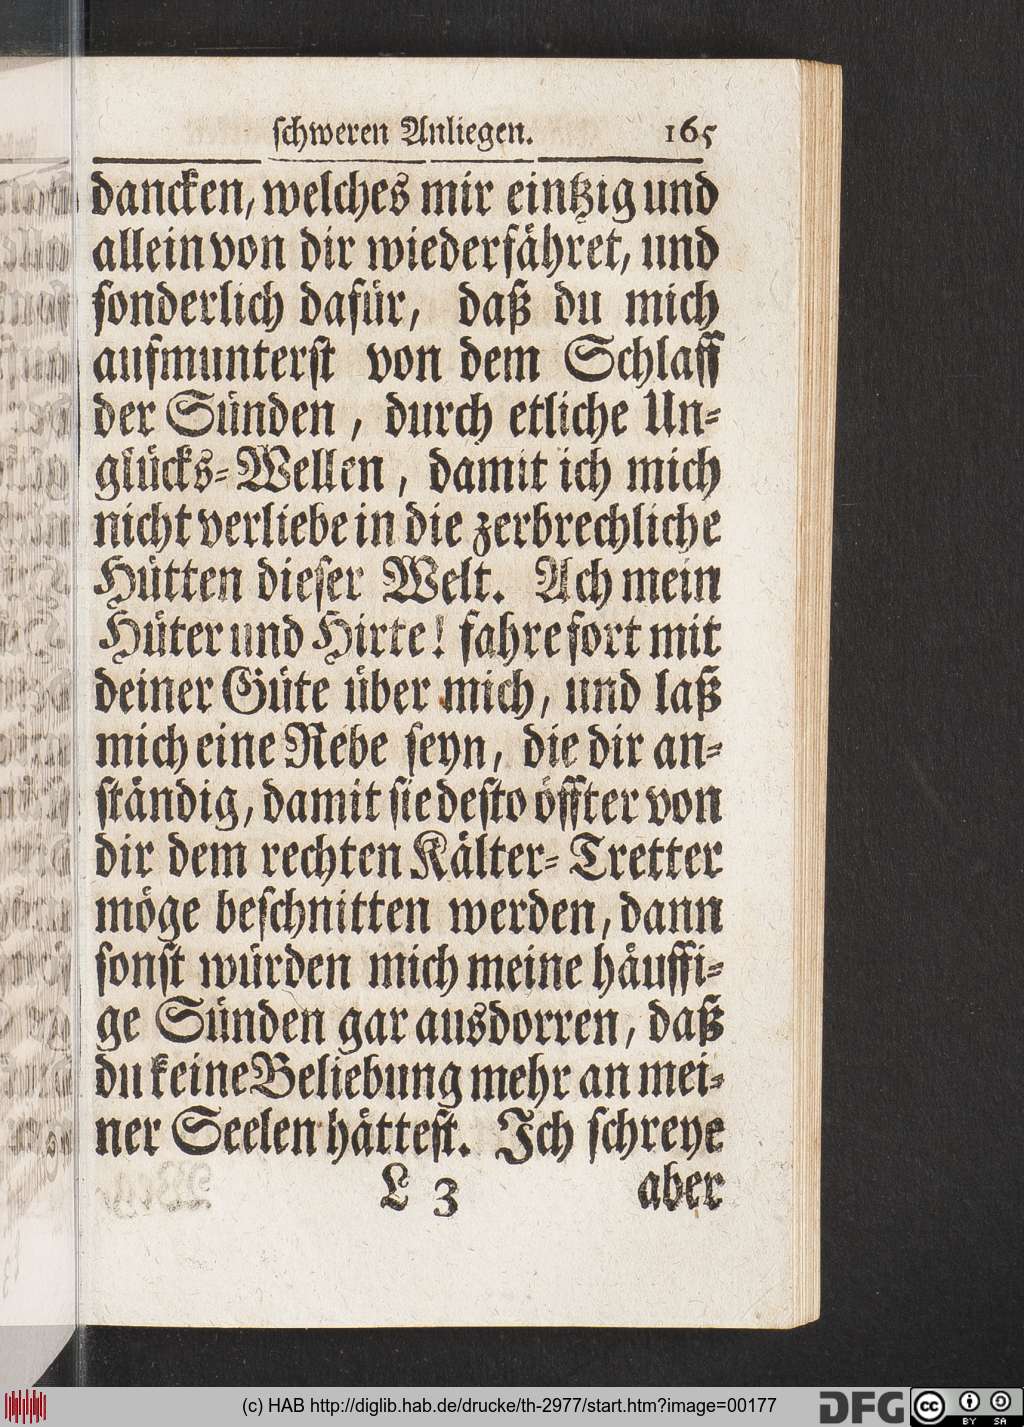 schweren Anliegen. 165
dancken, welches mir eintzig und
allein von dir wiederfähret, und
sonderlich dafür, daß du mich
aufmunterst von dem Schlaff
der Sünden, durch etliche Un-
glücks-Wellen, damit ich mich
nicht verliebe in die zerbrechliche
Hütten dieser Welt. Ach mein
Hüter und Hirte! fahre fort mit
deiner Güte über mich, und laß
mich eine Rebe seyn, die dir an-
ständig, damit sie desto öffter von
dir dem rechten Kälter-Tretter
möge beschnitten werden, dann
sonst würden mich meine häuffi-
ge Sünden gar ausdorren, daß
du keine Beliebung mehr an mei-
ner Seelen hättest. Ich schreye
L 3 aber
(c) HAB http://diglib.hab.de/drucke/th-2977/start.htm?image=00177
DFG
cc BY SA